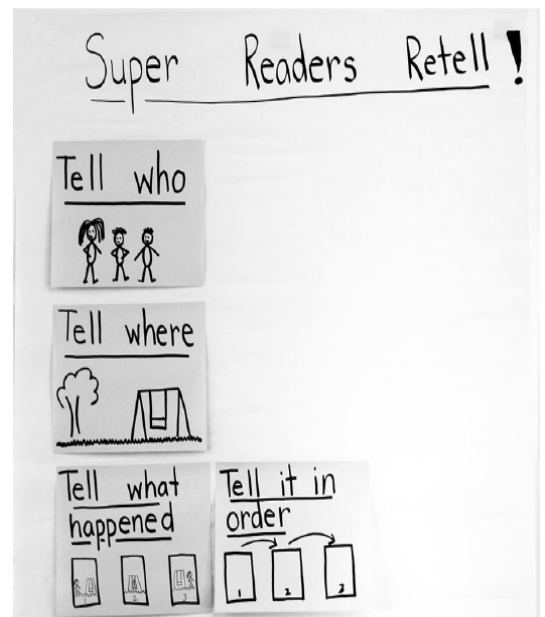 Super Readers Retell!
Tell who
Tell where
Tell what
happened
1 2 3
Tell it in
order
1 2 3